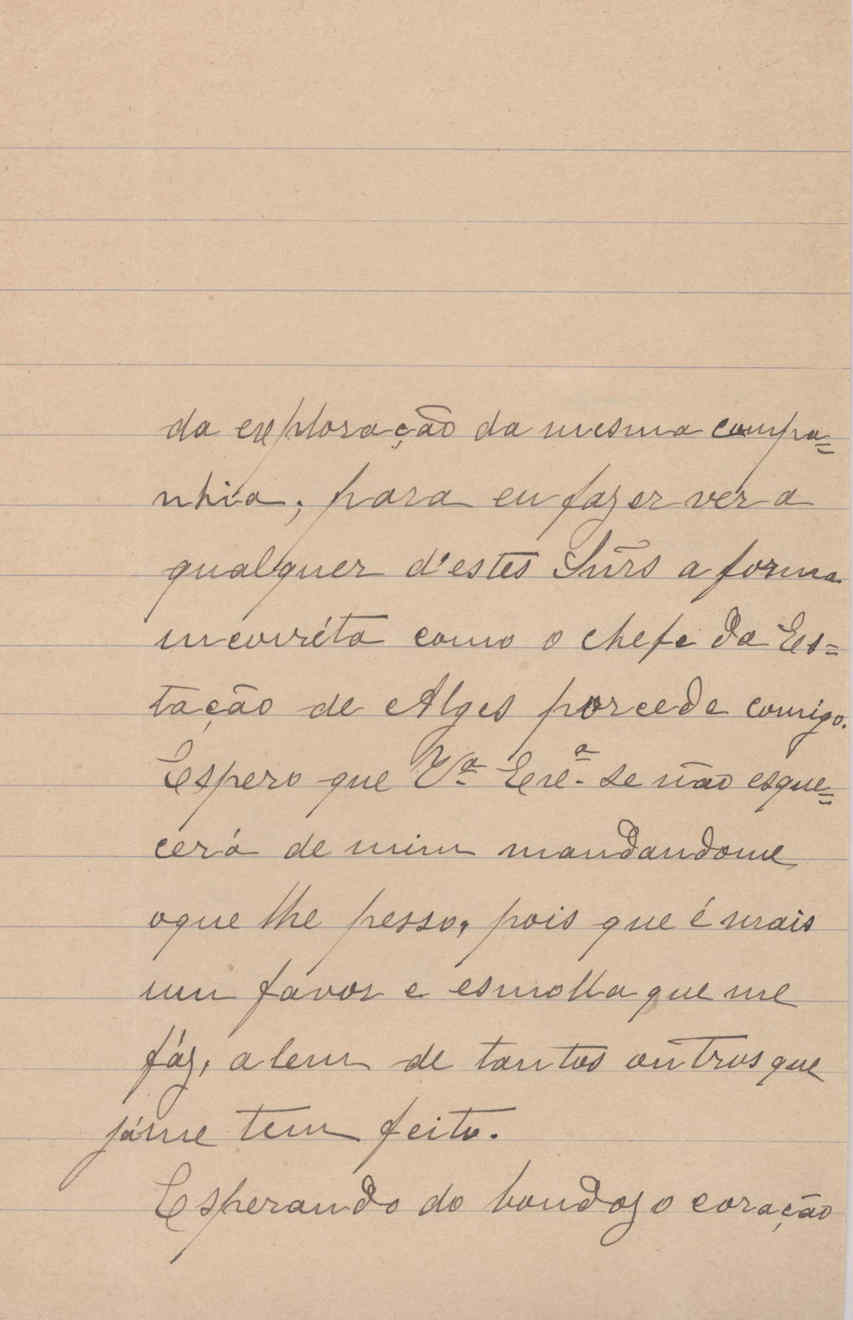 da exploração da mesma compa=
nhia; para eu fazer ver a
qualquer d'estes Snrs a forma
incorréta como o chefe da Es=
tação de Alges porcede comigo.
Espero que V.ª Exª. se não esque=
cerá de mim mandandome
oque lhe pesso, pois que é mais
um favor e esmolla que me
fáz, alem de tantos outros que
jáme tem feito.
Esperando do bondozo coração